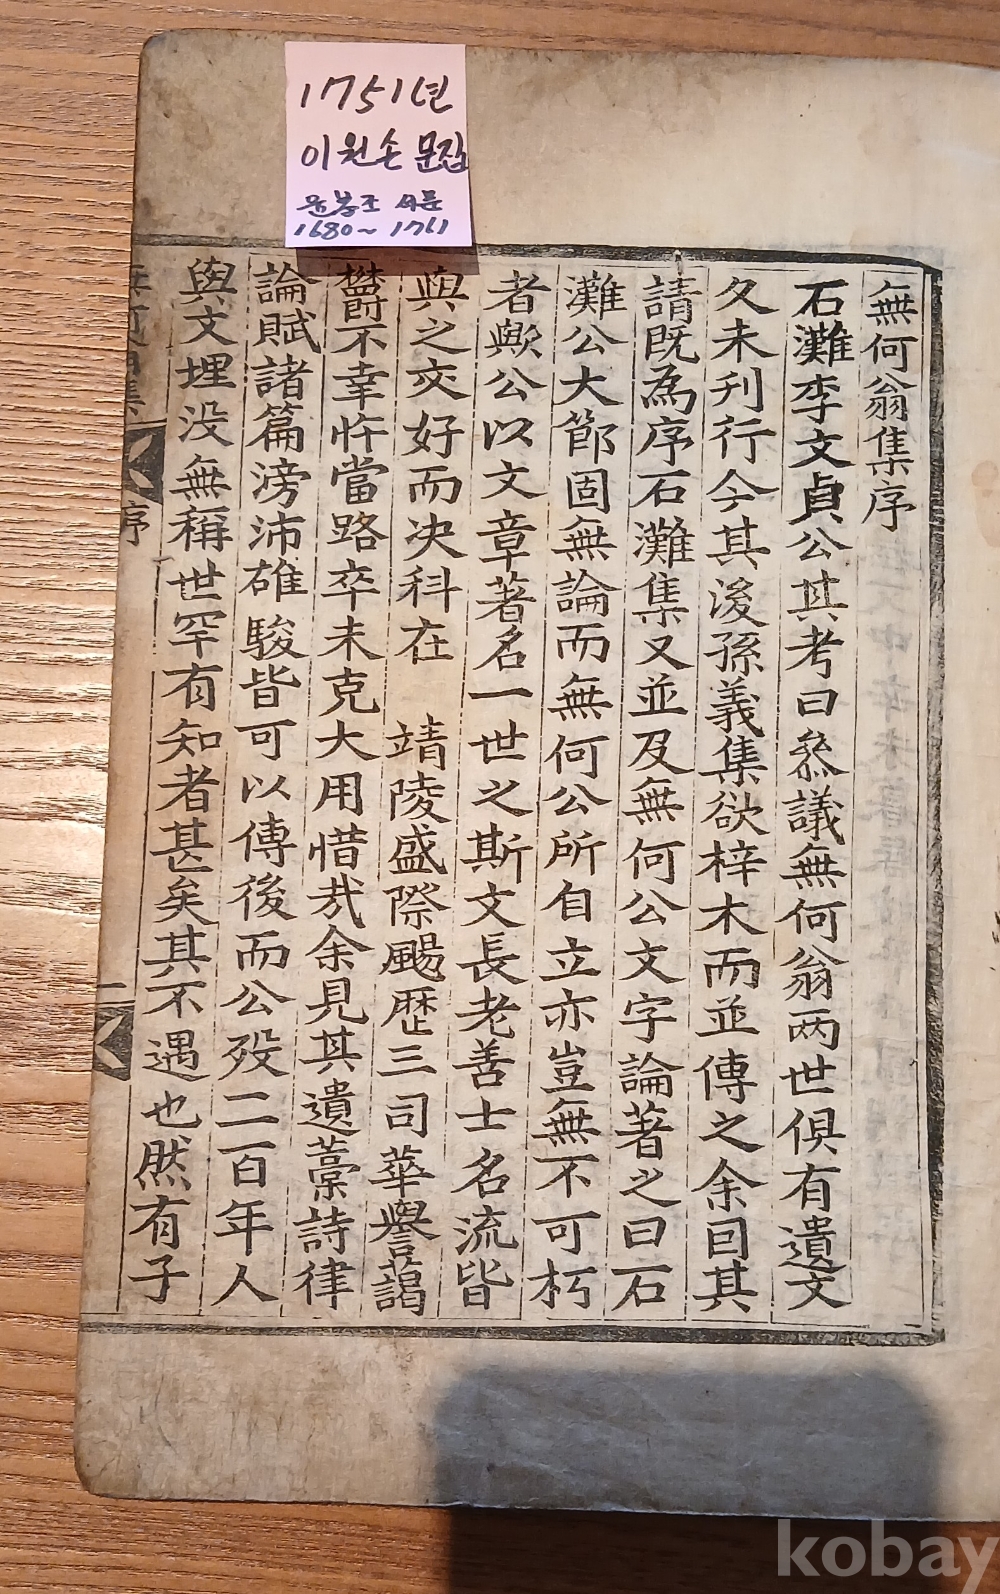 1751년
이원손 문집
윤봉조 서문
1680~1761
無何翁集序
石灘李文貞公其考曰叅議無何翁两世俱有遺文
久未刋行今其後孫義集欲梓木而並傳之余囙其
請既為序石灘集又並及無何公文字論著之曰石
灘公大節固無論而無何公所自立亦豈無不可朽
者歟公以文章著名一世之斯文長老善士名流皆
與之交好而决科在 靖陵盛際颺歷三司華譽藹
欝不幸忤當路卒未克大用惜㢤余見其遺藁詩律
論賦諸篇滂沛雄駿皆可以傳後而公歿二百年人
與文埋没無稱世罕有知者甚矣其不遇也然有子
序
一
kobay